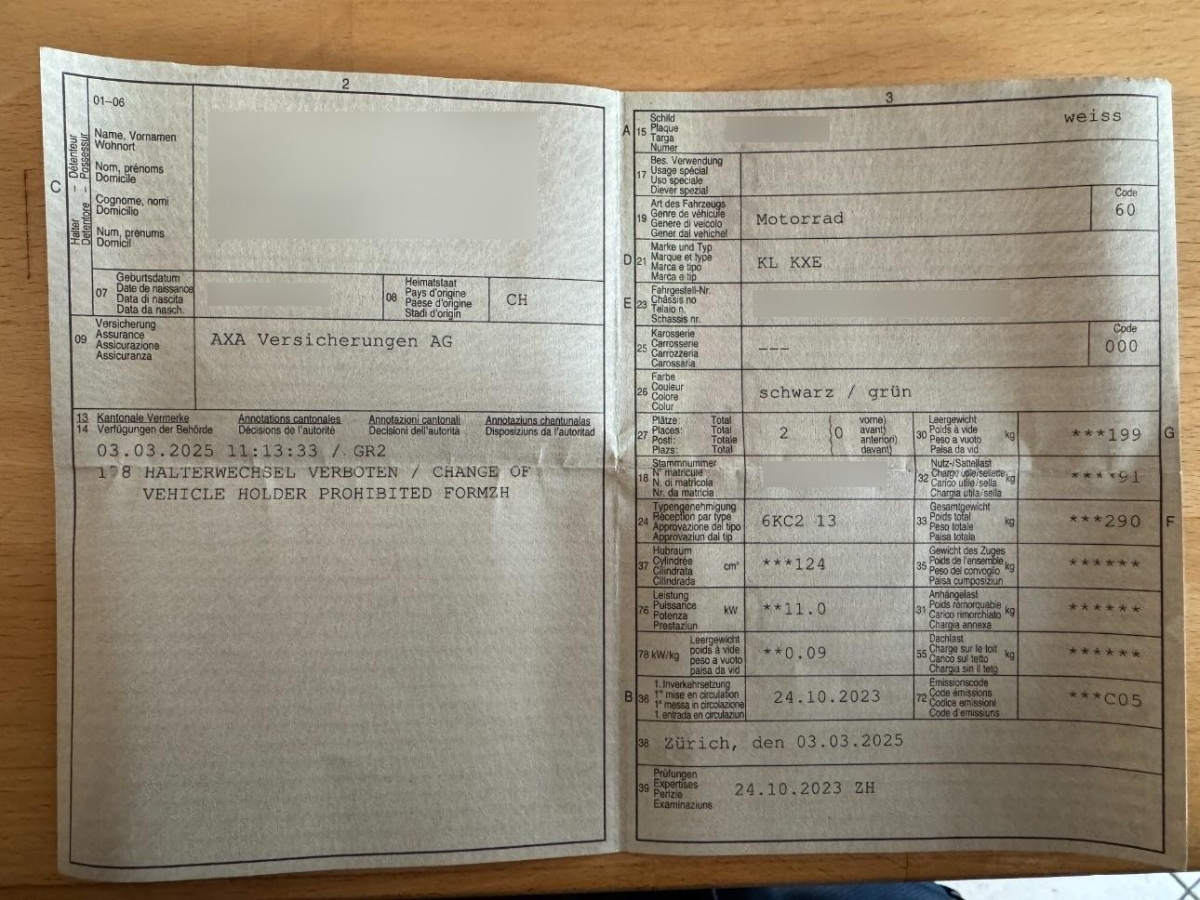 2
01-06
Name, Vornamen
Wohnort
Nom, prénoms
Domicile
Cognome, nomi
Domicilio
Num, prenums
Domicil
C
Halter - Détenteur
Detentore - Possessur
07
Geburtsdatum
Date de naissance
Data di nascita
Data da nasch.
08
Heimatstaat
Pays d'origine
Paese d'origine
Stadi d'origin
CH
09
Versicherung
Assurance
Assicurazione
Assicuranza
AXA Versicherungen AG
13 Kantonale Vermerke Annotations cantonales Annotazioni cantonali Annotaziuns chantunalas
14 Verfügungen der Behörde Décisions de l'autorité Decisioni dell'autorità Disposiziuns da l'autoritad
03.03.2025 11:13:33 / GR2
178 HALTERWECHSEL VERBOTEN / CHANGE OF
VEHICLE HOLDER PROHIBITED FORMZH
3
A 15
Schild
Plaque
Targa
Numer
weiss
17
Bes. Verwendung
Usage spécial
Uso speciale
Diever spezial
19
Art des Fahrzeugs
Genre de véhicule
Genere di veicolo
Gener dal vehichel
Motorrad
Code
60
D 21
Marke und Typ
Marque et type
Marca e tipo
Marca e tip
KL KXE
E 23
Fahrgestell-Nr.
Châssis no
Telaio n.
Schassis nr.
25
Karosserie
Carrosserie
Carrozzeria
Carossaria
---
Code
000
26
Farbe
Couleur
Colore
Colur
schwarz / grün
27
Plätze: Total
Places: Total
Posti: Totale
Plazs: Total
2
(0
vorne)
avant)
anteriori)
davant)
30
Leergewicht
Poids à vide
Peso a vuoto
Paisa da vid
kg
***199
G
18
Stammnummer
N° matricule
N. di matricola
Nr. da matricla
32
Nutz-/Sattellast
Charge utile/sellette
Carico utile/sella
Chargia utila/sella
kg
****91
24
Typengenehmigung
Réception par type
Approvazione del tipo
Approvaziun dal tip
6KC2 13
33
Gesamtgewicht
Poids total
Peso totale
Paisa totala
kg
***290
F
37
Hubraum
Cylindrée
Cilindrata
Cilindrada
cm³
***124
35
Gewicht des Zuges
Poids de l'ensemble
Peso del convoglio
Paisa cumposiziun
kg
******
76
Leistung
Puissance
Potenza
Prestaziun
kW
**11.0
31
Anhängelast
Poids remorquable
Carico rimorchiato
Chargia annexa
kg
******
78 kW/kg
Leergewicht
poids à vide
peso a vuoto
paisa da vid
**0.09
55
Dachlast
Charge sur le toit
Carico sul tetto
Chargia sin il tetg
kg
******
B 36
1. Inverkehrsetzung
1re mise en circulation
1a messa in circolazione
1. entrada en circulaziun
24.10.2023
72
Emissionscode
Code émissions
Codice emissioni
Code d'emissiuns
***C05
38 Zürich, den 03.03.2025
39
Prüfungen
Expertises
Perizie
Examinaziuns
24.10.2023 ZH